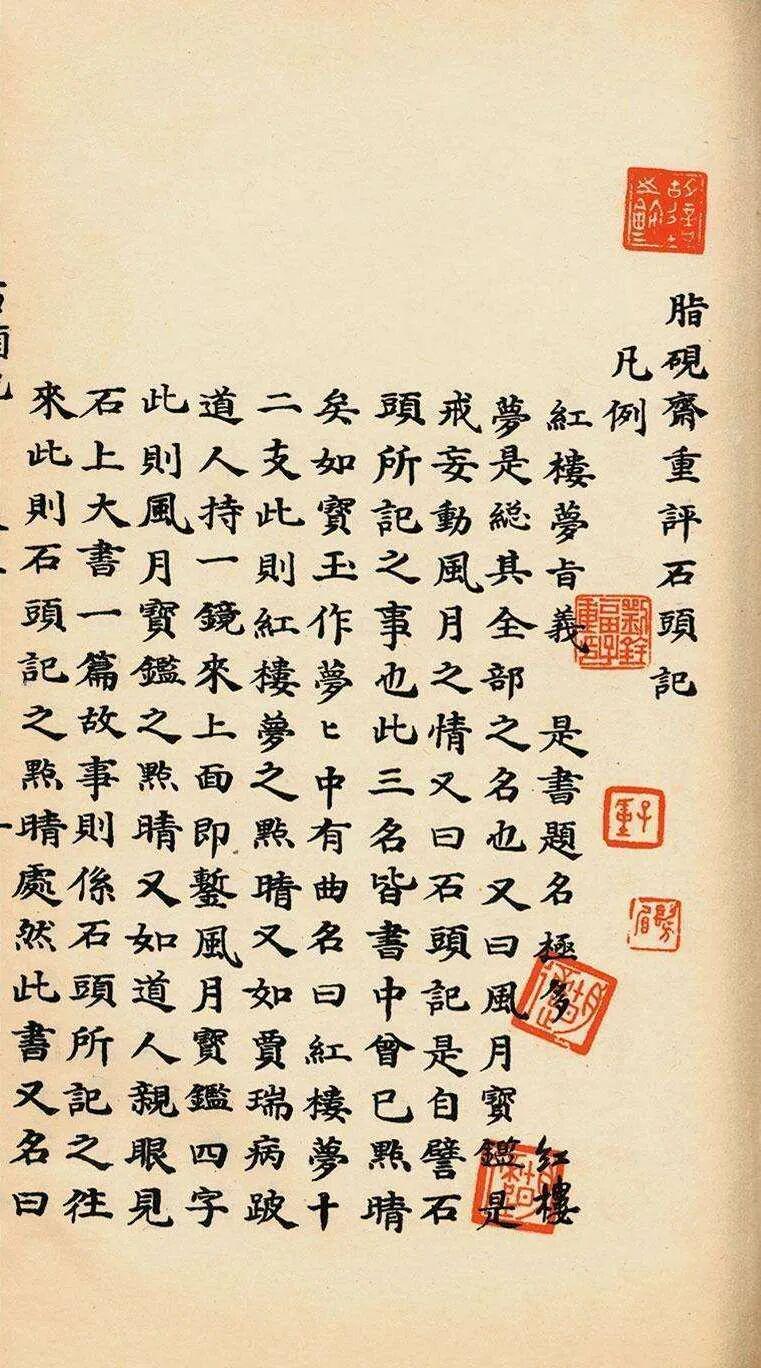 脂硯齋重評石頭記
凡例
紅樓夢旨義　是書題名極多　紅樓
夢是総其全部之名也又曰風月寳鑑是
戒妄動風月之情又曰石頭記是自譬石
頭所記之事也此三名皆書中曾已點晴
矣如寳玉作夢ヒ中有曲名曰紅樓夢十
二支此則紅樓夢之點晴又如賈瑞病跛
道人持一鏡來上面即鏨風月寳鑑四字
此則風月寳鑑之點晴又如道人親眼見
石上大書一篇故事則係石頭所記之往
來此則石頭記之點晴處然此書又名曰
劉銓畐子重印
子重
髣眉